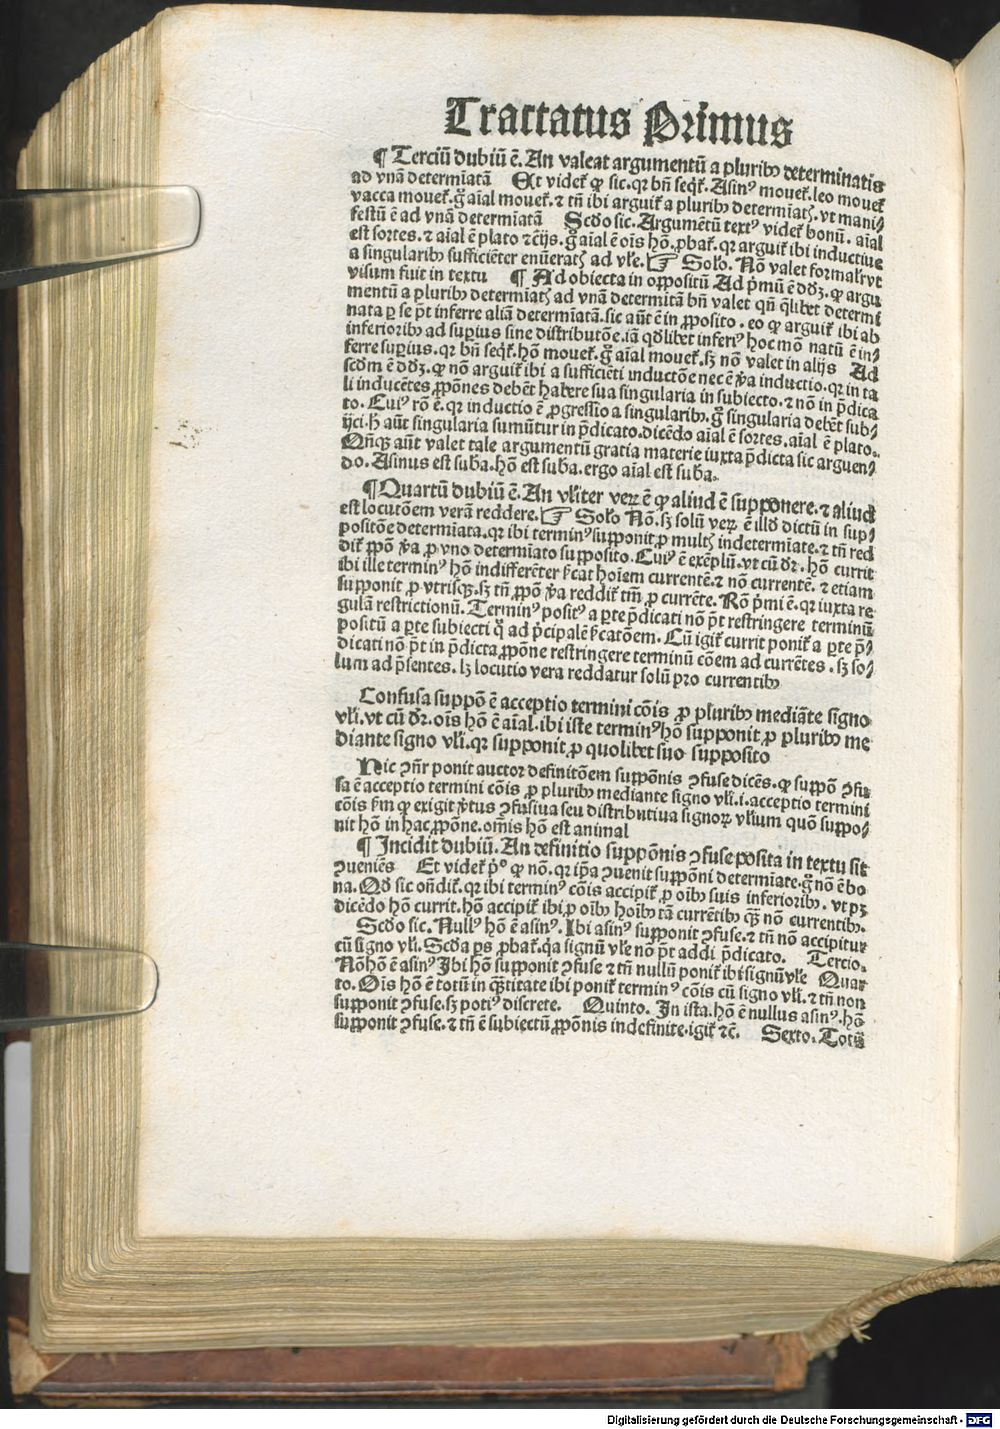 Tractatus Primus
¶ Terciū dubiū ē. An valeat argumentū a pluribꝰ determinatis
ad vnā determiatā Et videt̄ ꝙ sic. qꝛ bn̄ seqt̄. Asinꝰ mouet̄. leo mouet̄
vacca mouet̄. gͦ aial mouet̄. ⁊ tn̄ ibi arguit̄ a pluribꝰ determiatꝭ. vt mani⸗
festū ē ad vnā determiatā Scd̄o sic. Argumētū textꝰ videt̄ bonū. aial
est sortes. ⁊ aial ē plato ⁊cēijs. gͦ aial ē oīs hō. ꝓbat̄. qꝛ arguit̄ ibi inductiue
a singularibꝰ sufficiēter enūeratꝭ ad vl̄e. ☞ Solo. Nō valet formalr̄ vt
visum fuit in textu ¶ Ad obiecta in oppositū Ad p̄mū ē dd̄ꝫ. ꝙ argu
mentū a pluribꝰ determiatꝭ ad vnā determitā bn̄ valet qn̄ qͥlibet determi
nata ꝑ se pn̄t inferre aliā determiatā. sic aūt ē in ꝓposito. eo ꝙ arguit̄ ibi ab
inferioribꝰ ad suꝑius sine distributōe. iā qd̄libet inferiꝰ hoc mō natū ē in⸗
ferre suꝑius. qꝛ bn̄ seqt̄. hō mouet̄. gͦ aial mouet̄. sꝫ nō valet in alijs Ad
scd̄m ē dd̄ꝫ. ꝙ nō arguit̄ ibi a sufficiēti inductōe nec ē ꝟa inductio. qꝛ in ta
li inducētes ꝓpōnes debēt habere sua singularia in subiecto. ⁊ nō in p̄dica
to. Cuiꝰ rō ē. qꝛ inductio ē ꝓgressio a singularibꝰ. gͦ singularia debēt sub⸗
ijci. h̄ aūt singularia sumūtur in p̄dicato. dicēdo aial ē sortes. aial ē plato.
Qn̄qꝫ aūt valet tale argumentū gratia materie iuxta p̄dicta sic arguen⸗
do. Asinus est suba. hō est suba. ergo aial est suba.
¶ Quartū dubiū ē. An vl̄iter veꝝ ē ꝙ aliud ē supponere. ⁊ aliud
est locutōem verā reddere. ☞ Solo Nō. sꝫ solū veꝝ ē illd̄ dictū in sup⸗
positōe determiata. qꝛ ibi terminꝰ supponit ꝓ multꝭ indetermiate. ⁊ tn̄ red
dit̄ ꝓpō ꝟa ꝓ vno determiato supposito. Cuiꝰ ē exēplū. vt cū dꝛ. hō currit
ibi ille terminꝰ hō indifferēter p̄cat hoīem currentē. ⁊ nō currentē. ⁊ etiam
supponit ꝓ vtrisqꝫ. sꝫ tn̄ ꝓpō ꝟa reddit̄ tm̄ ꝓ currēte. Rō p̄mi ē. qꝛ iuxta re
gulā restrictionū. Terminꝰ positꝰ a ꝑte p̄dicati nō pn̄t restringere terminū
positū a ꝑte subiecti qͦ ad p̄cipalē p̄catōem. Cū igit̄ currit ponit̄ a ꝑte p̄⸗
dicati nō pn̄t in p̄dicta ꝓpōne restringere terminū cōem ad currētes. sꝫ so⸗
lum ad p̄sentes. lꝫ locutio vera reddatur solū pro currentibꝰ
Confusa suppō ē acceptio termini cōis ꝓ pluribꝰ mediāte signo
vl̄i. vt cū dꝛ. oīs hō ē aial. ibi iste terminꝰ hō supponit ꝓ pluribꝰ me
diante signo vl̄i. qꝛ supponit ꝓ quolibet suo supposito
Hic ꝯn̄r ponit auctor definitōem suppōnis ꝯfuse dicēs. ꝙ suppō ꝯfu
sa ē acceptio termini cōis ꝓ pluribꝰ mediante signo vl̄i. i. acceptio termini
cōis p̄m ꝙ exigit ꝟtus ꝯfusiua seu distributiua signoꝝ vl̄ium quō suppo⸗
nit hō in hac ꝓpōne. om̄is hō est animal
¶ Incidit dubiū. An definitio suppōnis ꝯfuse posita in textu sit
ꝯueniēs Et videt̄ p̄ᵒ ꝙ nō. qꝛ ip̄a ꝯuenit suppōni determiate. gͦ nō ē bo
na. Qd̄ sic on̄dit̄. qꝛ ibi terminꝰ cōis accipit̄ ꝓ oībꝰ suis inferioribꝰ. vt pꝫ
dicēdo hō currit. hō accipit̄ ibi ꝓ oībꝰ hoībꝰ tā currētibꝰ qꝫ̄ nō currentibꝰ.
Scd̄o sic. Nullꝰ hō ē asinꝰ. Ibi asinꝰ supponit ꝯfuse. ⁊ tn̄ nō accipitur
cū signo vl̄i. Scd̄a ꝑs ꝓbat̄. qꝛ signū vl̄e nō pn̄t addi p̄dicato. Tercio.
Nō hō ē asinꝰ Ibi hō supponit ꝯfuse ⁊ tn̄ nullū ponit̄ ibi signū vl̄e Quar
to. Oīs hō ē totū in qꝫ̄titate ibi ponit̄ terminꝰ cōis cū signo vl̄i. ⁊ tn̄ non
supponit ꝯfuse. sꝫ potiꝰ discrete. Quinto. In ista. hō ē nullus asinꝰ. hō
supponit ꝯfuse. ⁊ tn̄ ē subiectū ꝓpōnis indefinite. igit̄ ⁊c̄. Sexto. Totū
Digitalisierung gefördert durch die Deutsche Forschungsgemeinschaft - DFG